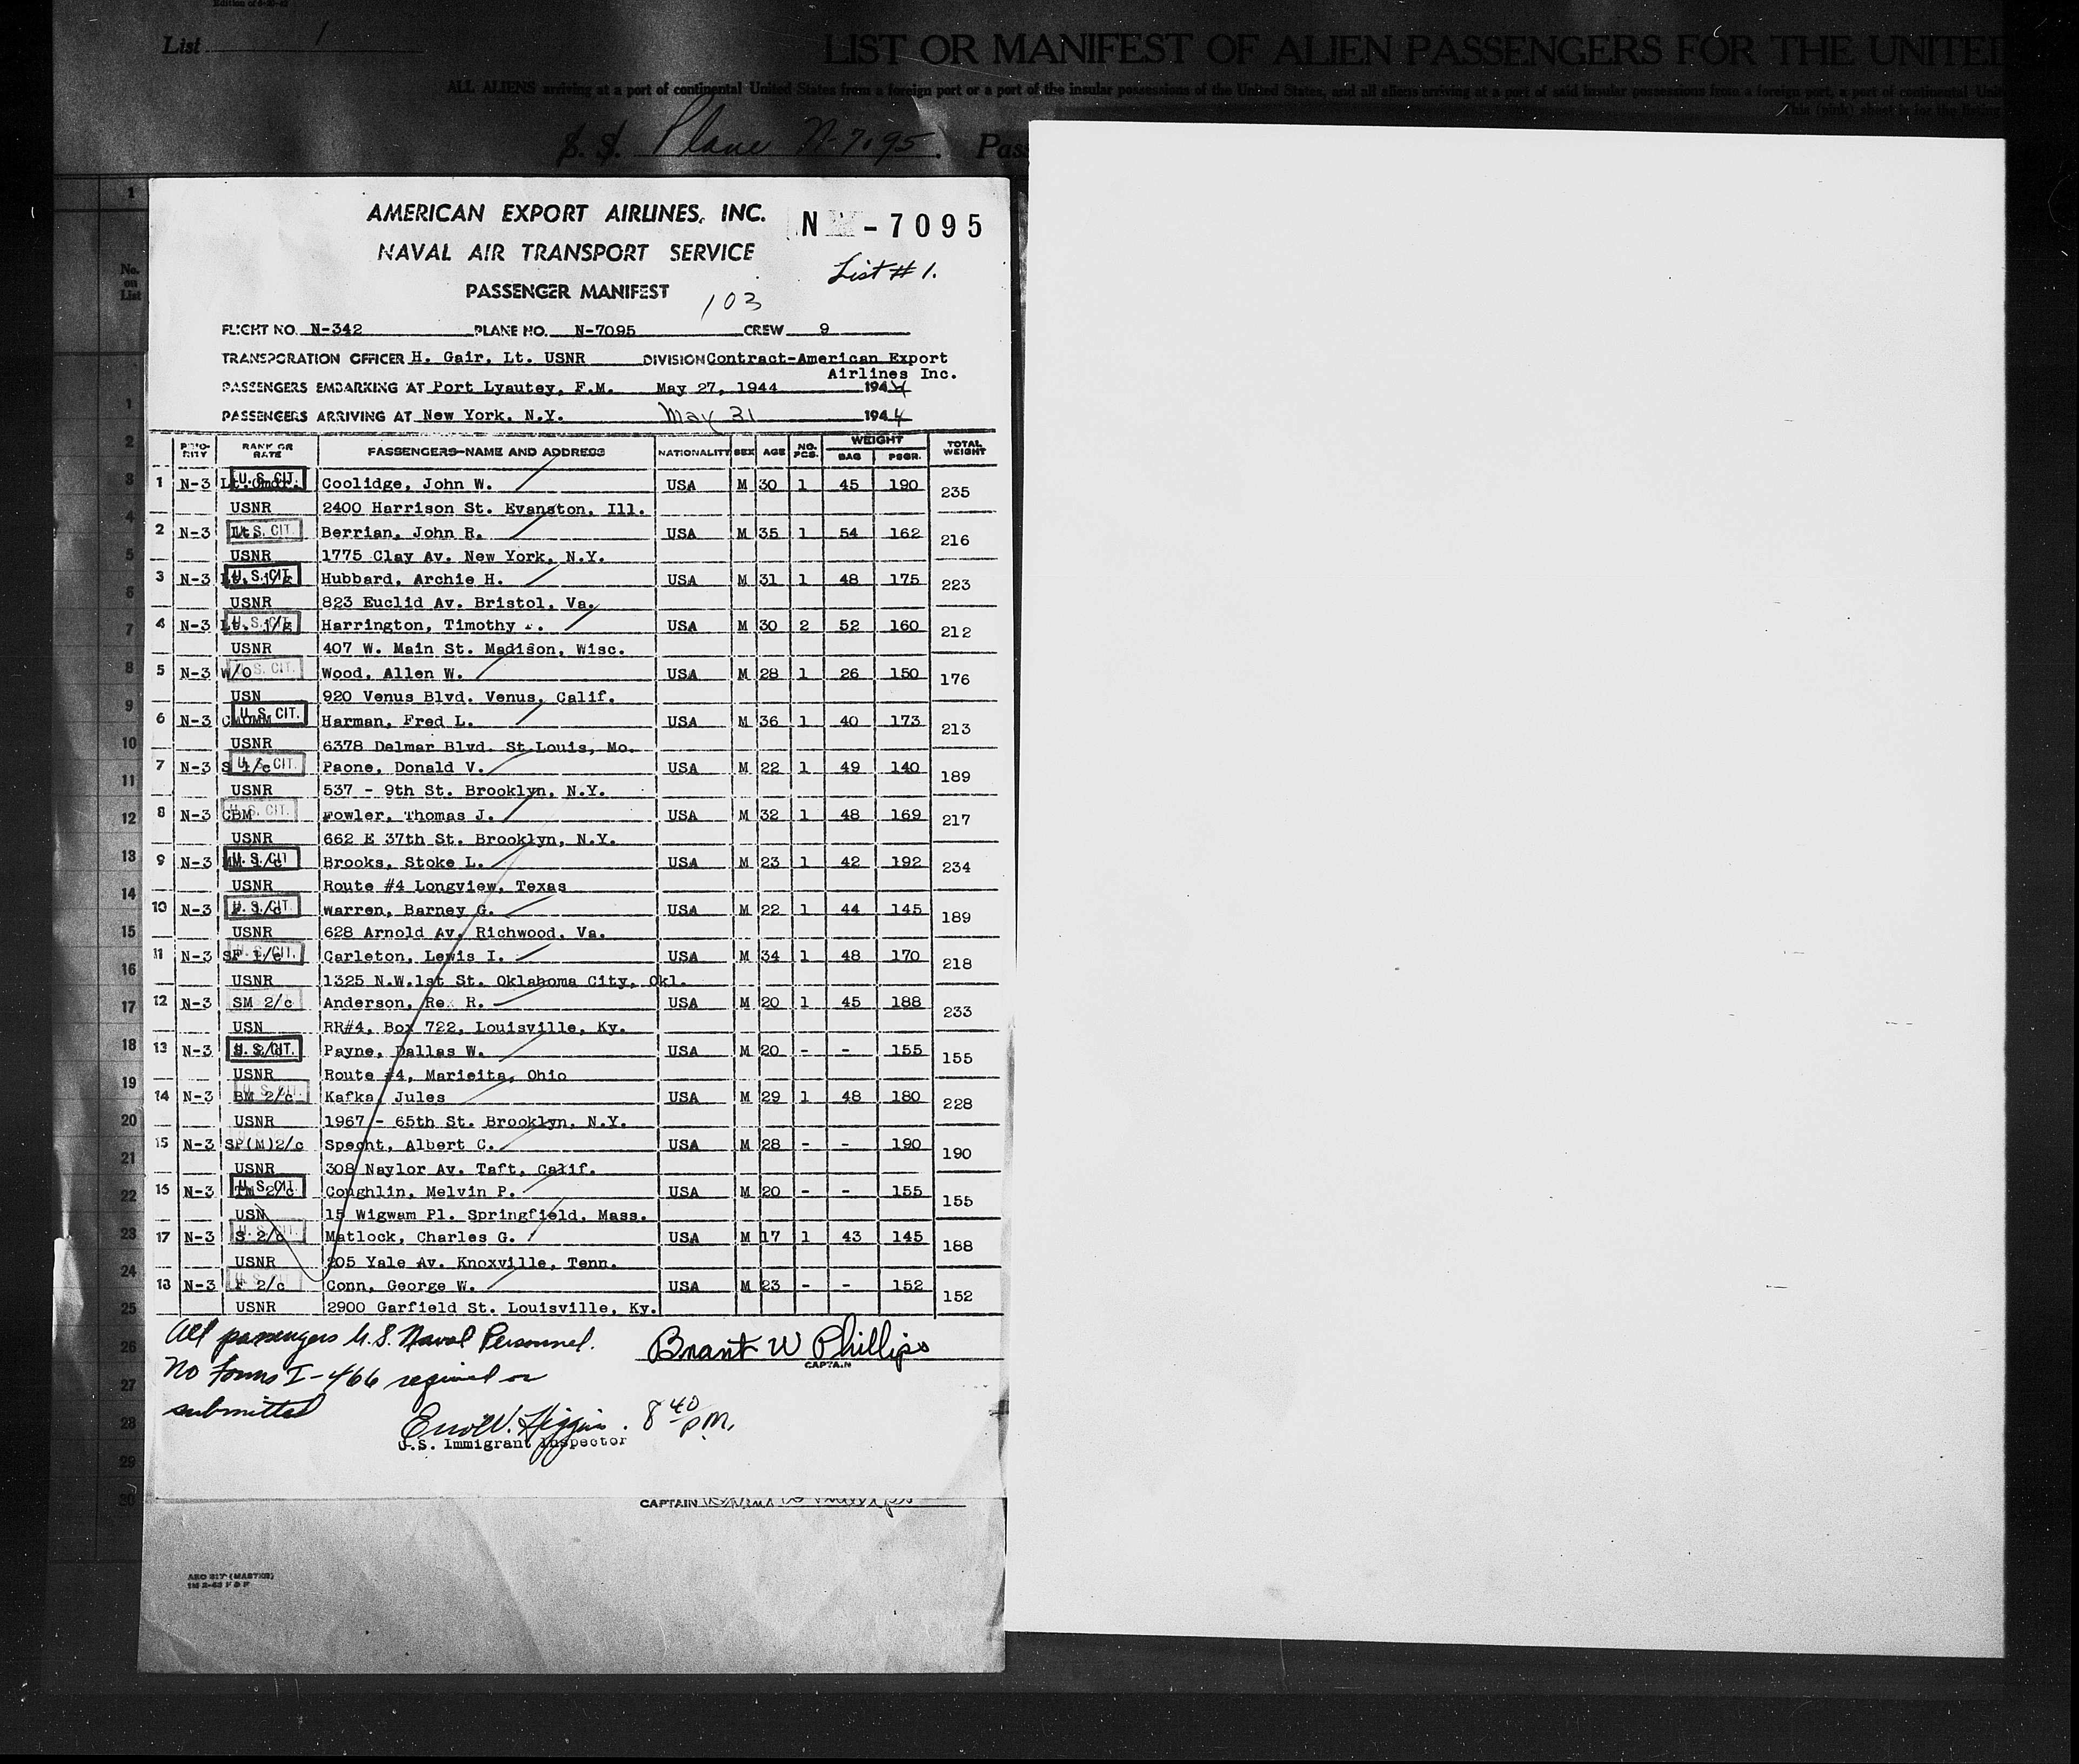 Edition of
List 1
LIST OR MANIFEST OF ALIEN PASSENGERS FOR THE UNITED
ALL ALIENS arriving at a port of continental United States from a foreign port or a port of the insular possessions of the United States, and all aliens arriving at a port of said insular possessions from a foreign port, a port of continental
This (pink) sheet is for the listing
S. S. Plane N-7095. Pass
AMERICAN EXPORT AIRLINES, INC. N -7095
NAVAL AIR TRANSPORT SERVICE
List # 1.
PASSENGER MANIFEST
103
FLIGHT NO. N-342 PLANE NO. N-7095 CREW 9
TRANSPORATION OFFICER H. Gair, Lt. USNR DIVISION Contract-American Export
Airlines Inc.
PASSENGERS EMBARKING AT Port Lyautey, F.M. May 27, 1944 1944
PASSENGERS ARRIVING AT New York, N.Y. May 31 1944
PRIORITY RANK OR RATE PASSENGERS-NAME AND ADDRESS NATIONALITY SEX AGE NO. PCS. WEIGHT BAG PSGR. TOTAL WEIGHT
1 N-3 U.S. CIT. Coolidge, John W. USA M 30 1 45 190 235
USNR 2400 Harrison St. Evanston, Ill.
2 N-3 Lt. U.S. CIT. Berrian, John R. USA M 35 1 54 162 216
USNR 1775 Clay Av. New York, N.Y.
3 N-3 Lt. j/g U.S. CIT. Hubbard, Archie H. USA M 31 1 48 175 223
USNR 823 Euclid Av. Bristol, Va.
4 N-3 Lt. j/g U.S. CIT. Harrington, Timothy . USA M 30 2 52 160 212
USNR 407 W. Main St. Madison, Wisc.
5 N-3 W/O U.S. CIT. Wood, Allen W. USA M 28 1 26 150 176
USN 920 Venus Blvd. Venus, Calif.
6 N-3 CMOMM U.S. CIT. Harman, Fred L. USA M 36 1 40 173 213
USNR 6378 Delmar Blvd. St.Louis, Mo.
7 N-3 S 1/c U.S. CIT. Paone, Donald V. USA M 22 1 49 140 189
USNR 537 - 9th St. Brooklyn, N.Y.
8 N-3 CBM U.S. CIT. Fowler, Thomas J. USA M 32 1 48 169 217
USNR 662 E 37th St. Brooklyn, N.Y.
9 N-3 MM 1/c U.S. CIT. Brooks, Stoke L. USA M 23 1 42 192 234
USNR Route #4 Longview, Texas
10 N-3 U.S. CIT. Warren, Barney G. USA M 22 1 44 145 189
USNR 628 Arnold Av. Richwood, Va.
11 N-3 SF 1/c U.S. CIT. Carleton, Lewis I. USA M 34 1 48 170 218
USNR 1325 N.W.1st St. Oklahoma City, Okl.
12 N-3 SM 2/c Anderson, Re R. USA M 20 1 45 188 233
USN RR#4, Box 722, Louisville, Ky.
13 N-3 S 2/c U.S. CIT. Payne, Dallas W. USA M 20 - - 155 155
USNR Route #4, Marieita, Ohio
14 N-3 BM 2/c U.S. CIT. Kafka, Jules USA M 29 1 48 180 228
USNR 1967 - 65th St. Brooklyn, N.Y.
15 N-3 SP(M)2/c Specht, Albert C. USA M 28 - - 190 190
USNR 308 Naylor Av. Taft, Calif.
15 N-3 TM 2/c U.S. CIT. Coughlin, Melvin P. USA M 20 - - 155 155
USN 15 Wigwam Pl. Springfield, Mass.
17 N-3 S 2/c U.S. CIT. Matlock, Charles G. USA M 17 1 43 145 188
USNR 205 Yale Av. Knoxville, Tenn.
18 N-3 F 2/c U.S. CIT. Conn, George W. USA M 23 - - 152 152
USNR 2900 Garfield St. Louisville, Ky.
All passengers U.S. Naval Personnel.
Brant W Phillips
CAPTAIN
No Forms I-466 required or
submitted
Higgins. 8 40 P.M.
U.S. Immigrant Inspector
CAPTAIN
1
No. on List
1
2
3
4
5
6
7
8
9
10
11
12
13
14
15
16
17
18
19
20
21
22
23
24
25
26
27
28
29
30